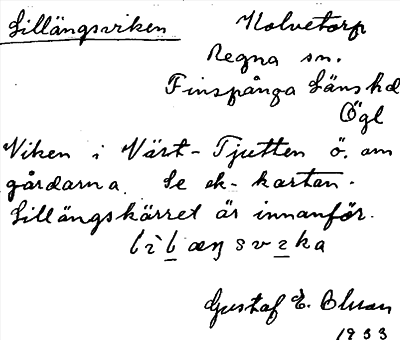 Lillängsviken Kolvetorp
Regna sn.
Finspånga Länshd
Ögl
Viken i Väst-Tjutten ö. om
gårdarna. Se ek-kartan.
Lillängskärret är innanför.
Gustaf E.
1933